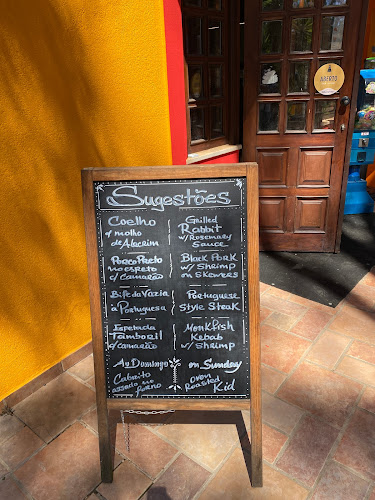 ABERTO
Sugestões
Coelho
c/ molho
de Alecrim
Grilled
Rabbit
w/Rosemary
Sauce
Porco Preto
no espeto
c/ camarão
Black Pork
w/ Shrimp
on Skowers
Bife da Vazia
à Portuguesa
Portuguese
Style Steak
Espetada
Tamboril
c/ camarão
Monkfish
Kebab
w/ Shrimp
Ao Domingo
Cabrito
assado no forno
on Sunday
oven
Roasted Kid